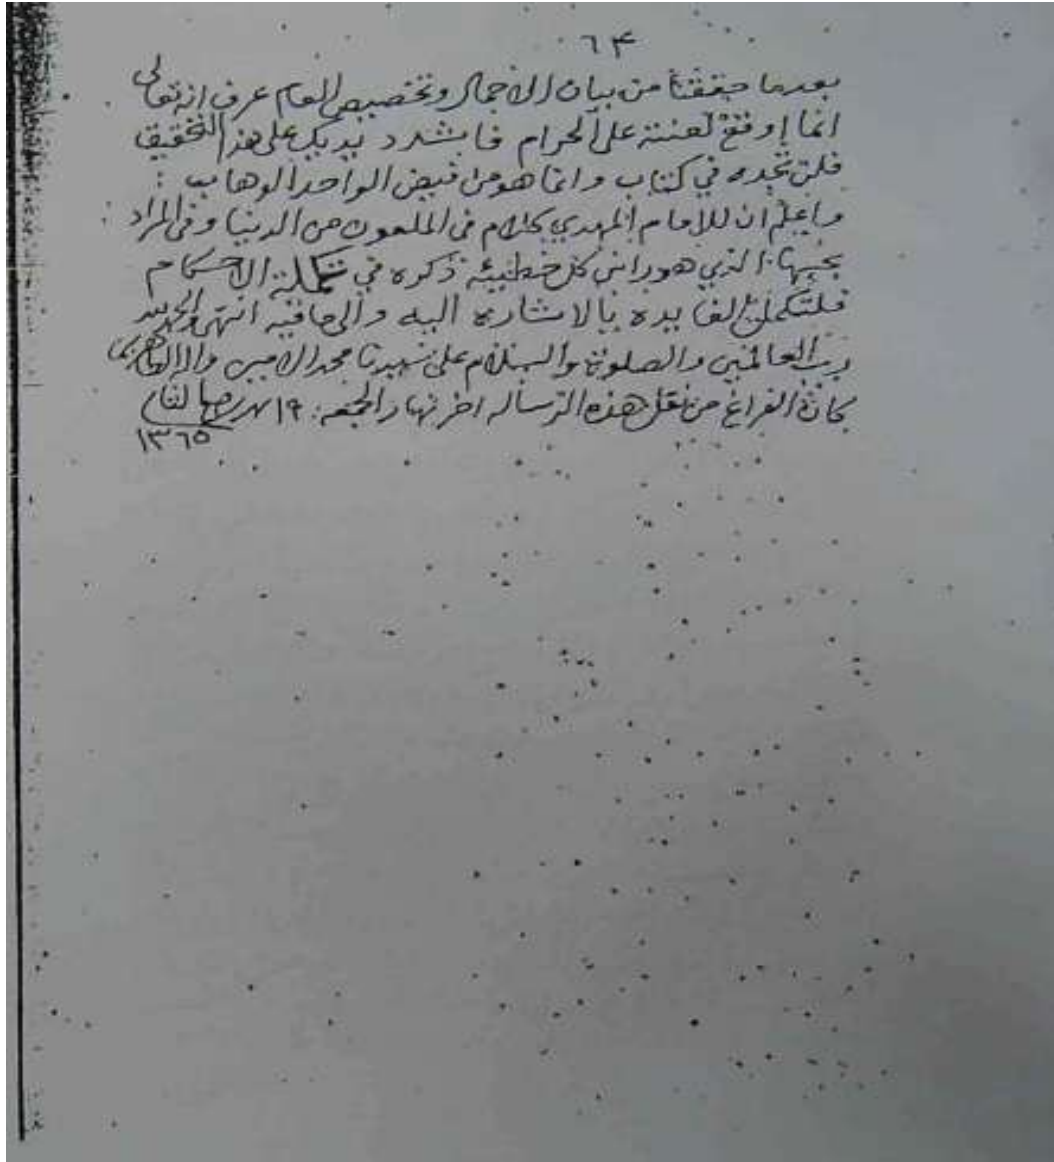 ٦٣
بعدما حققنا من بيان الاجمال وتخصيص العام عرف انه تعالى
انما اوقع لعنته على الحرام فاشدد يديك على هذا التحقيق
فلن تجده في كتاب وانما هو من فيض الواحد الوهاب :
واعلم ان للامام المهدي كلام في الملعون من الدنيا وفي المراد
بحبها الذي هو راس كل خطيئة ذكره في تكملة الاحكام
فلتكمل الفايده بالاشاره اليه والى مافيه انتهى والحمد لله
رب العالمين والصلوة والسلام على سيدنا محمد الامين واله
كان الفراغ من نقل هذه الرساله اخر نهار الجمعه : ١٩
١٣٦٥